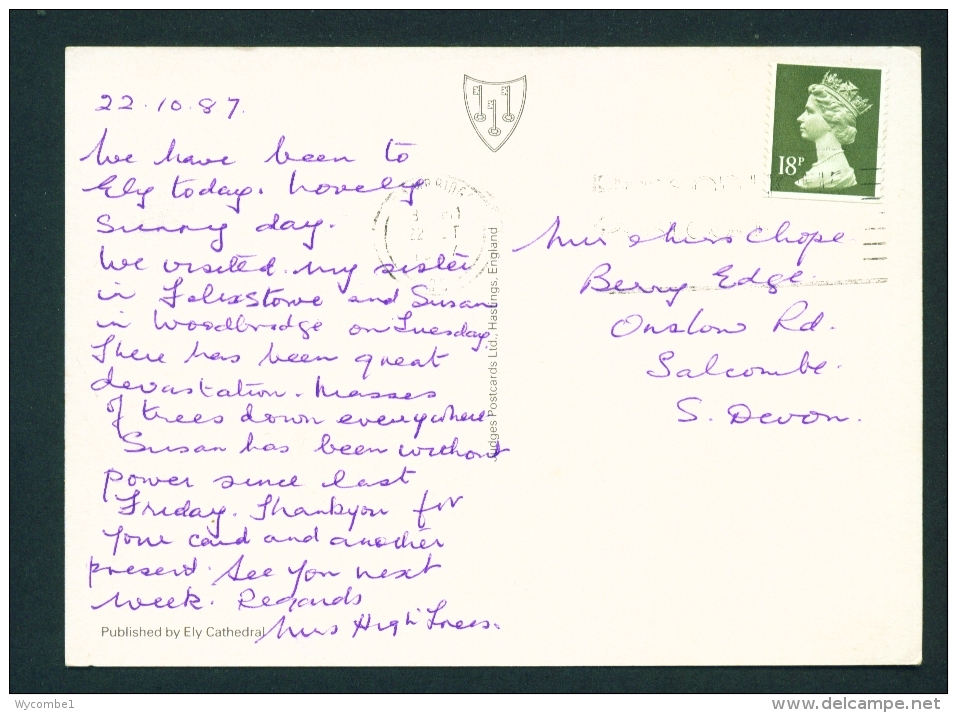 22.10.87.
We have been to
Ely today. Lovely
Sunny day.
We visited my sister
in Felixstowe and Susan
in Woodbridge on Tuesday.
There has been great
devastation. Masses
of trees down everywhere
Susan has been without
power since last
Friday. Thankyou for
your card and another
present. See you next
week. Regards
Mrs High Trees.
Published by Ely Cathedral
Judges Postcards Ltd., Hastings, England
18P
Mr & Mrs Chope
Berry Edge
Onslow Rd.
Salcombe.
S. Devon.
Wycombe1
www.delcampe.net